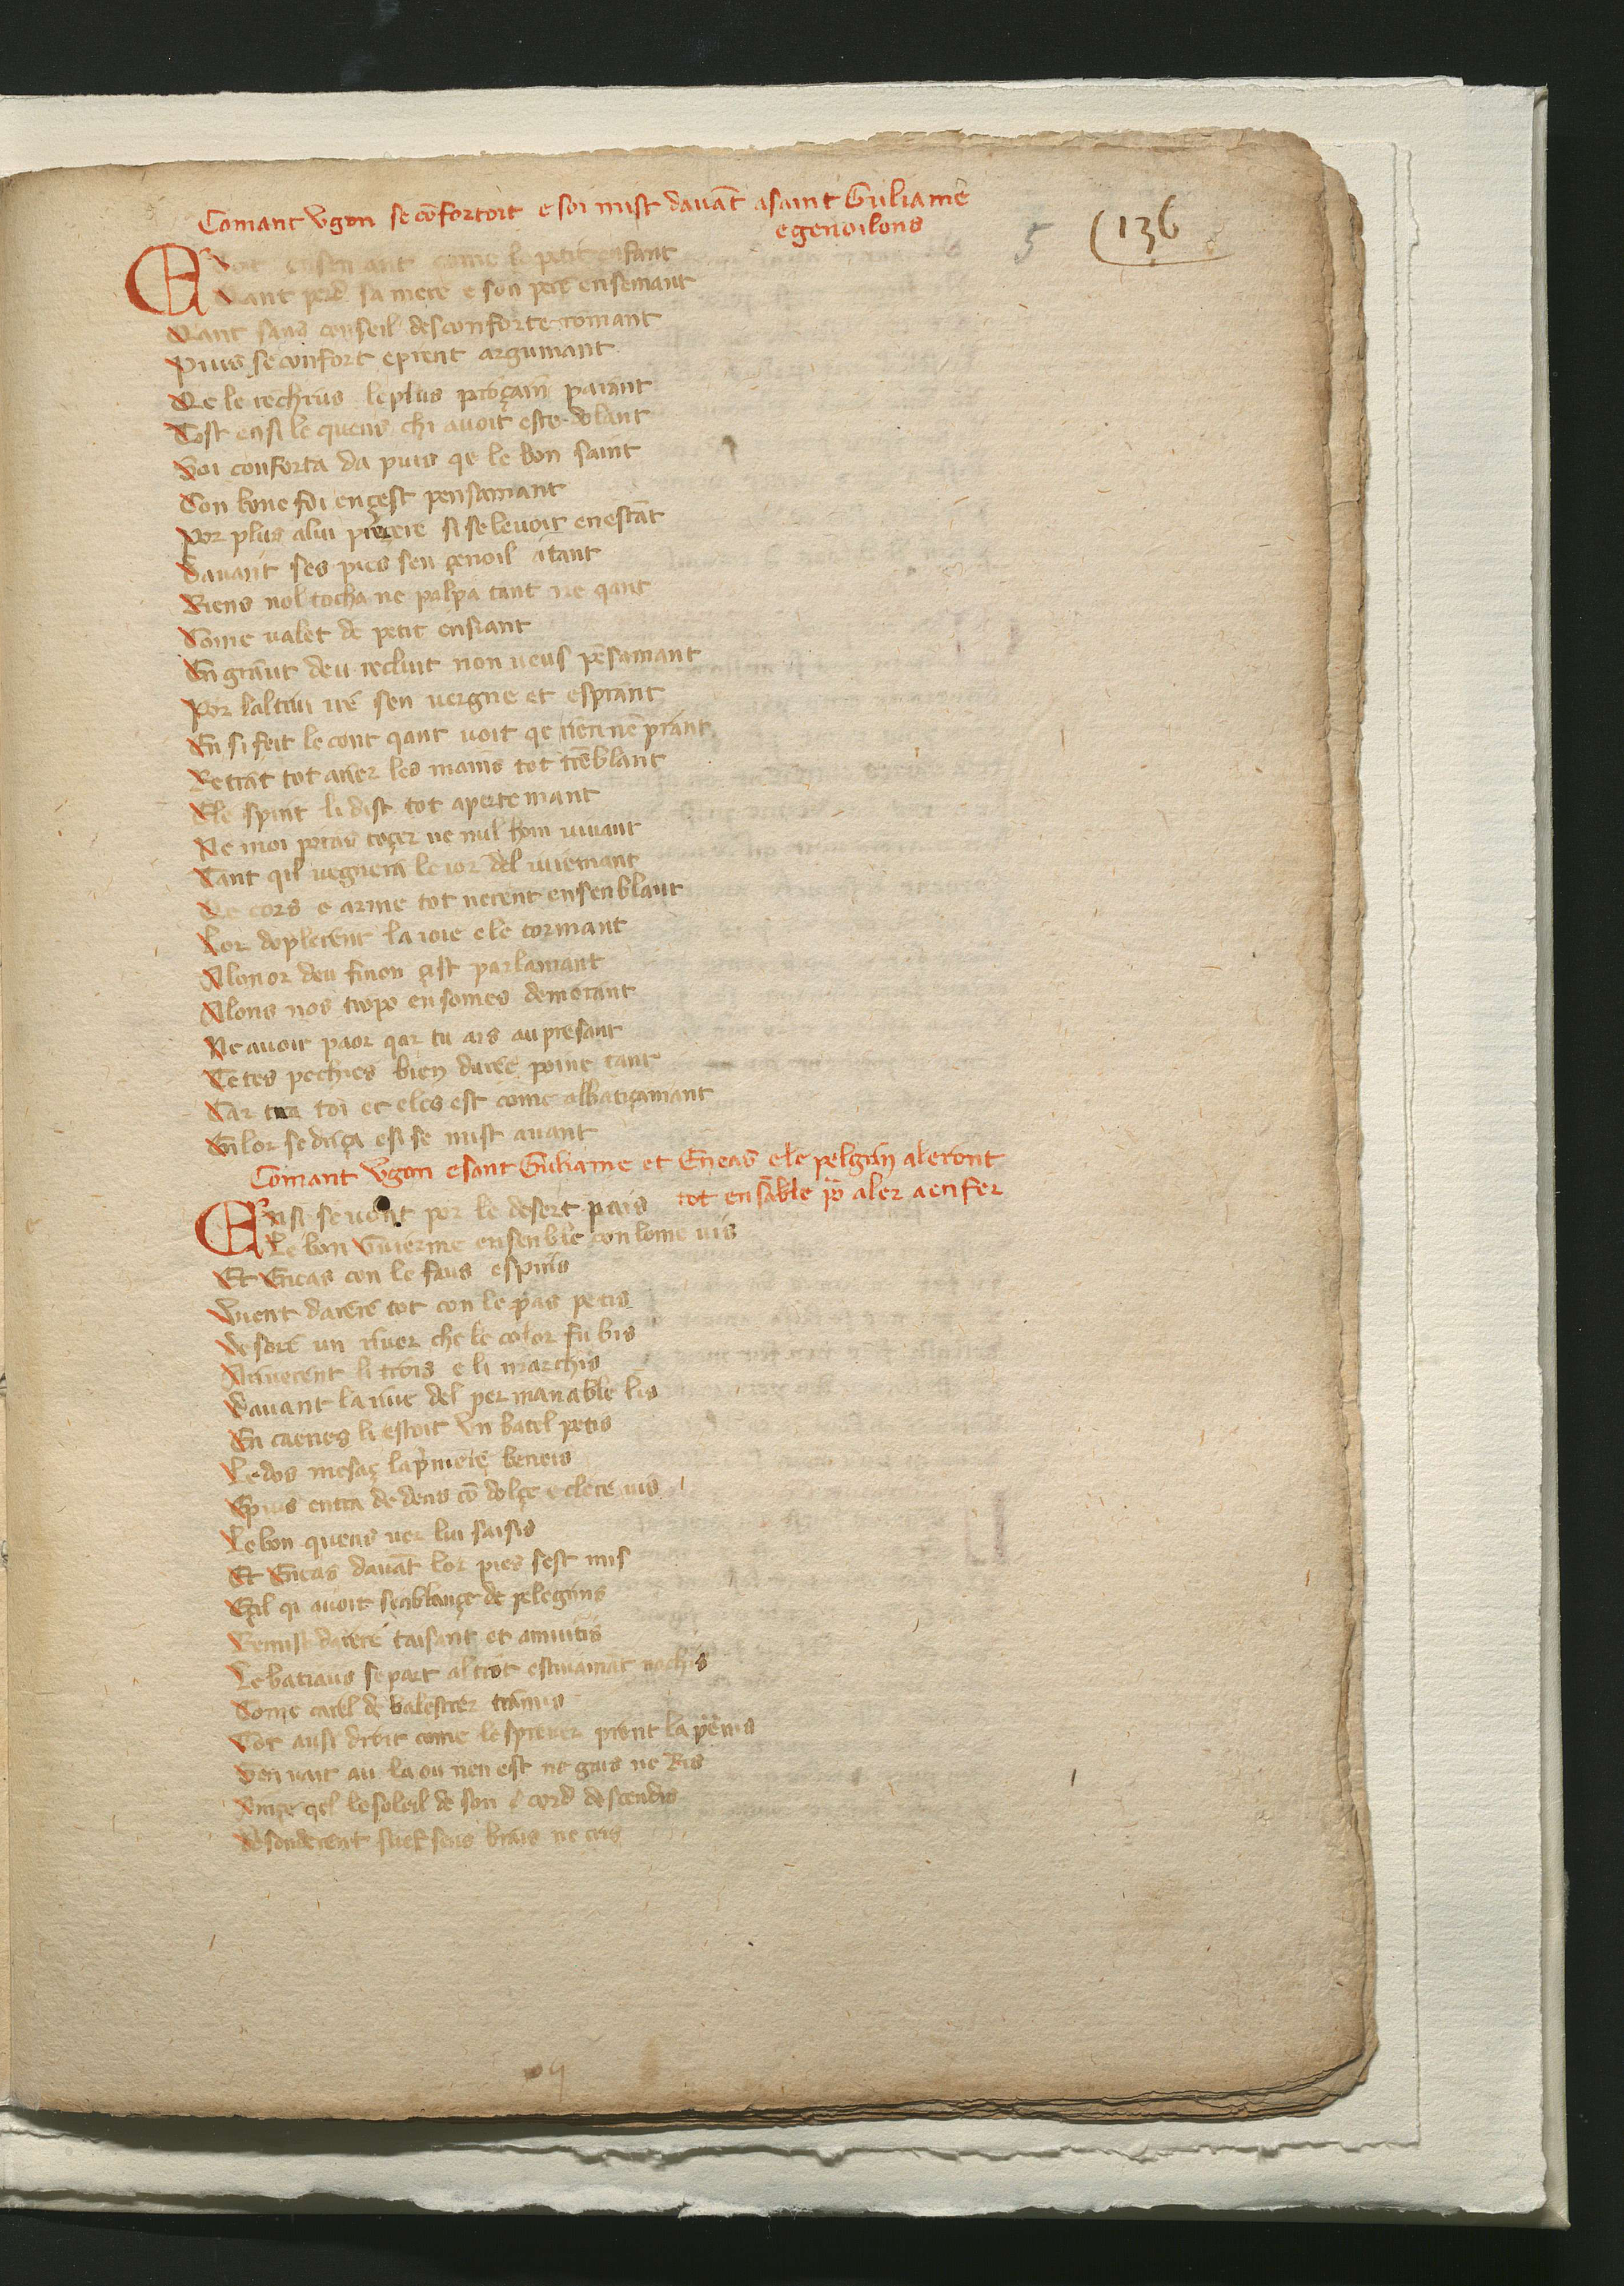 Comant vgon se cōfortoit e soi mist davāt a saint Guliame
e genoilons
5 (136
Tot ensemant come le petit enfant
Qant perd sa mere e son pere ensemant
Qant sans conseil desconforte romant
Puis se confort e prent argumant
Qe le rechius le plus proçain parant
Tost ensi le quens chi avoit este dolant
Soi conforta da puis qe le bon saint
Con bone foi en cest pensamant
Por plus a lui proiere si se levoit en estāt
Davant ses pies sen çenoil atant
Riens nol tocha ne palpa tant ne qant
Come valet de petit ensiant
En grant deu recluit non veus pēsamant
Por laltrui ire sen vergne et esprant
En si feit le cont qant voit qe rien nē prant
Retrāt tot arier les mains tot trēblant
E le spirit li dist tot apertemant
Ne moi poras toçer ne nul hom vivant
Tant qil vegnera le ior del iuiemant
Qe cors e arme tot nerent ensenblant
Lor doplerent la ioie e le tormant
A lonor deu finon cist parlamant
Alons nos tropo en somes demorant
Ne avoir paor qar tu ais au presant
Te tes pechies bien duree poine tant
Car toi et eles est come albatiçamant
En lor se driça e si se mist avant
Comant Vgon e sant Guliame et Eneas e le pelgrin aleront
tot ensāble por aler a enfer
Ensi se vont por le desert pais
Le bon Guierme ensenble con lome vis
Et Eneas con le faus espiris
Vient darere tot con le pas petis
Desore un river che le color fu bis
Ariverent li trois e li marchis
Davant la rive del permanable lis
En caenes li estoit vn batel petis
Le dos mesaç la primere beneis
E puis entra dedens cō dolçe e clere vis
Le bon quens ver lui saisis
Et Eneas davāt lor pies sest mis
E cil qi avoit senblançe de pelegrins
Remist darere taisant et amutis
Le batiaus se part al trot
Come carel de balestrer tramis
Tot ausi droit come lesprever prent la perdris
Sen vait au la ou nen est ne gius ne Ris
Ançe qel le soleil de son cord descendis